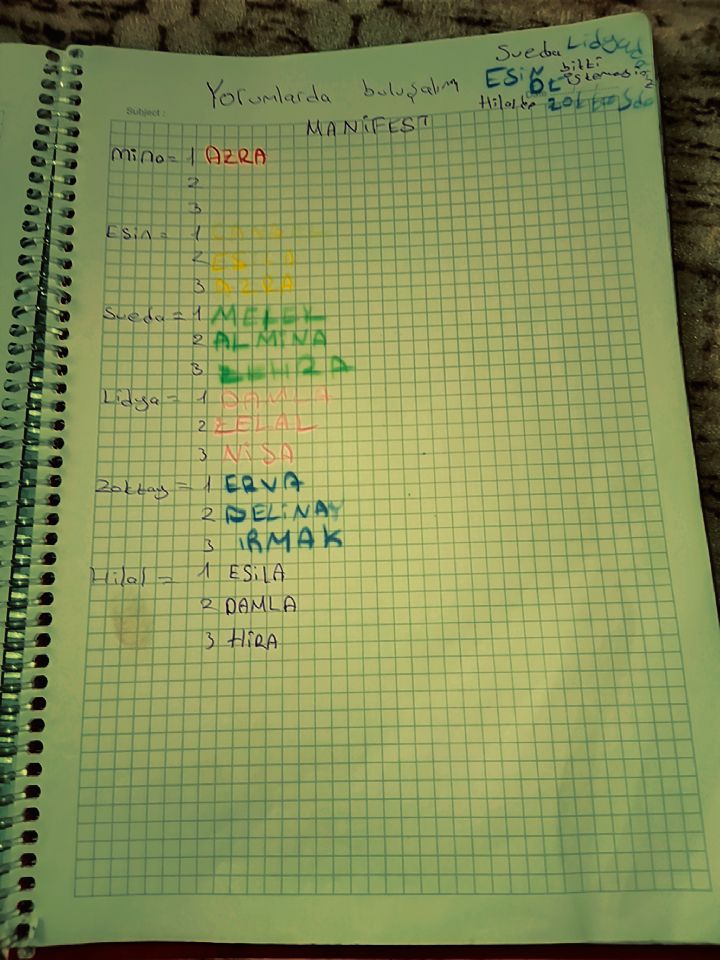 Sueda Lidyada
ESİN DE bitti istemesiniz
Hilal'de Zoktayda
Yorumlarda buluşalım
Subject :
MANİFEST
Mina = 1 AZRA
2
3
Esin = 1
2 ESİLA
3 AZRA
Sueda = 1 MELEK
2 ALMİNA
3 ZEHRA
Lidya = 1 DAMLA
2 ZELAL
3 NİSA
Zoktay = 1 ERVA
2 PELİNAY
3 IRMAK
Hilal = 1 ESİLA
2 DAMLA
3 HİRA